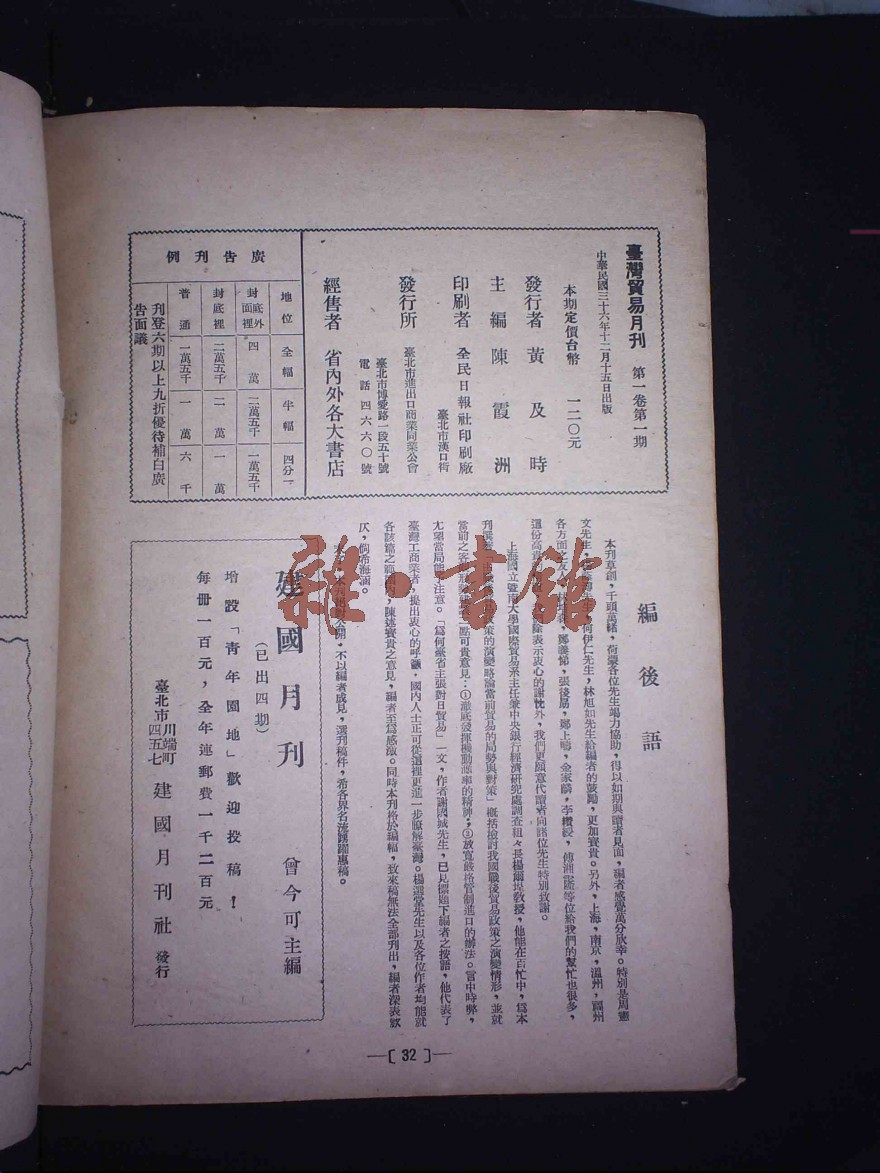 臺灣貿易月刊 第一卷第一期
中華民國三十六年十二月十五日出版
本期定價台幣 一二〇元
發行者 黃及時
主編 陳霞洲
印刷者 全民日報社印刷廠
臺北市漢口街
發行所 臺北市進出口商業同業公會
臺北市博愛路一段五十號
電話四六六〇號
經售者 省內外各大書店
廣告刊例
地位 全幅 半幅 四分一
封底外 封面裡 四萬 二萬五千 一萬五千
封底裡 二萬五千 二萬 一萬
普通 一萬五千 一萬 六千
刊登六期以上九折優待補白廣
告面議
編後語
本刊草創,千頭萬緒,荷蒙各位先生竭力協助,得以如期與讀者見面,編者感覺萬分欣幸。特別是周憲
文先生,何伊仁先生,林旭如先生給編者的鼓勵,更加寶貴。另外,上海,南京,溫州,福州
各方面之友人,鄭義悌,張後扃,鄭上疇,金家麟,李,傅湘霖等位給我們的幫忙也很多,
這份高貴的除表示衷心的謝忱外,我們更願意代讀者向諸位先生特別致謝。
上海國立暨南大學國際貿易系主任兼中央銀行經濟研究處調查組々長楊爾珵教授,他能在百忙中,爲本
刊政策的演變略論當前貿易的局勢與對策」概括檢討我國戰後貿易政策之演變情形,並就
當前之客觀形點可貴意見:①澈底發揮機動商率的精神;②放寬嚴格管制進口的辦法。言中時弊,
尤望當局能予注意。「爲何臺省主張對日貿易」一文,作者謝國城先生,已見標題下編者之按語,他代表了
臺灣工商業者,提出衷心的呼籲,國內人士正可從這裡更進一步瞭解臺灣。楊選堂先生以及各位作者均能就
各該篇之範陳述寶貴之意見,編者至爲感激。同時本刊格於編幅,致來稿無法全部刊出,編者深表歉
仄,倘希海涵。
末了,本刊絕對公開,不以編者成見,選刊稿件,希各界名流踴躍惠稿。
建國月刊 曾今可主編
(已出四期)
增設「靑年園地」歡迎投稿!
每冊一百元,全年連郵費一千二百元
臺北市川端町四五七 建國月刊社 發行
—〔32〕—
雜·書館